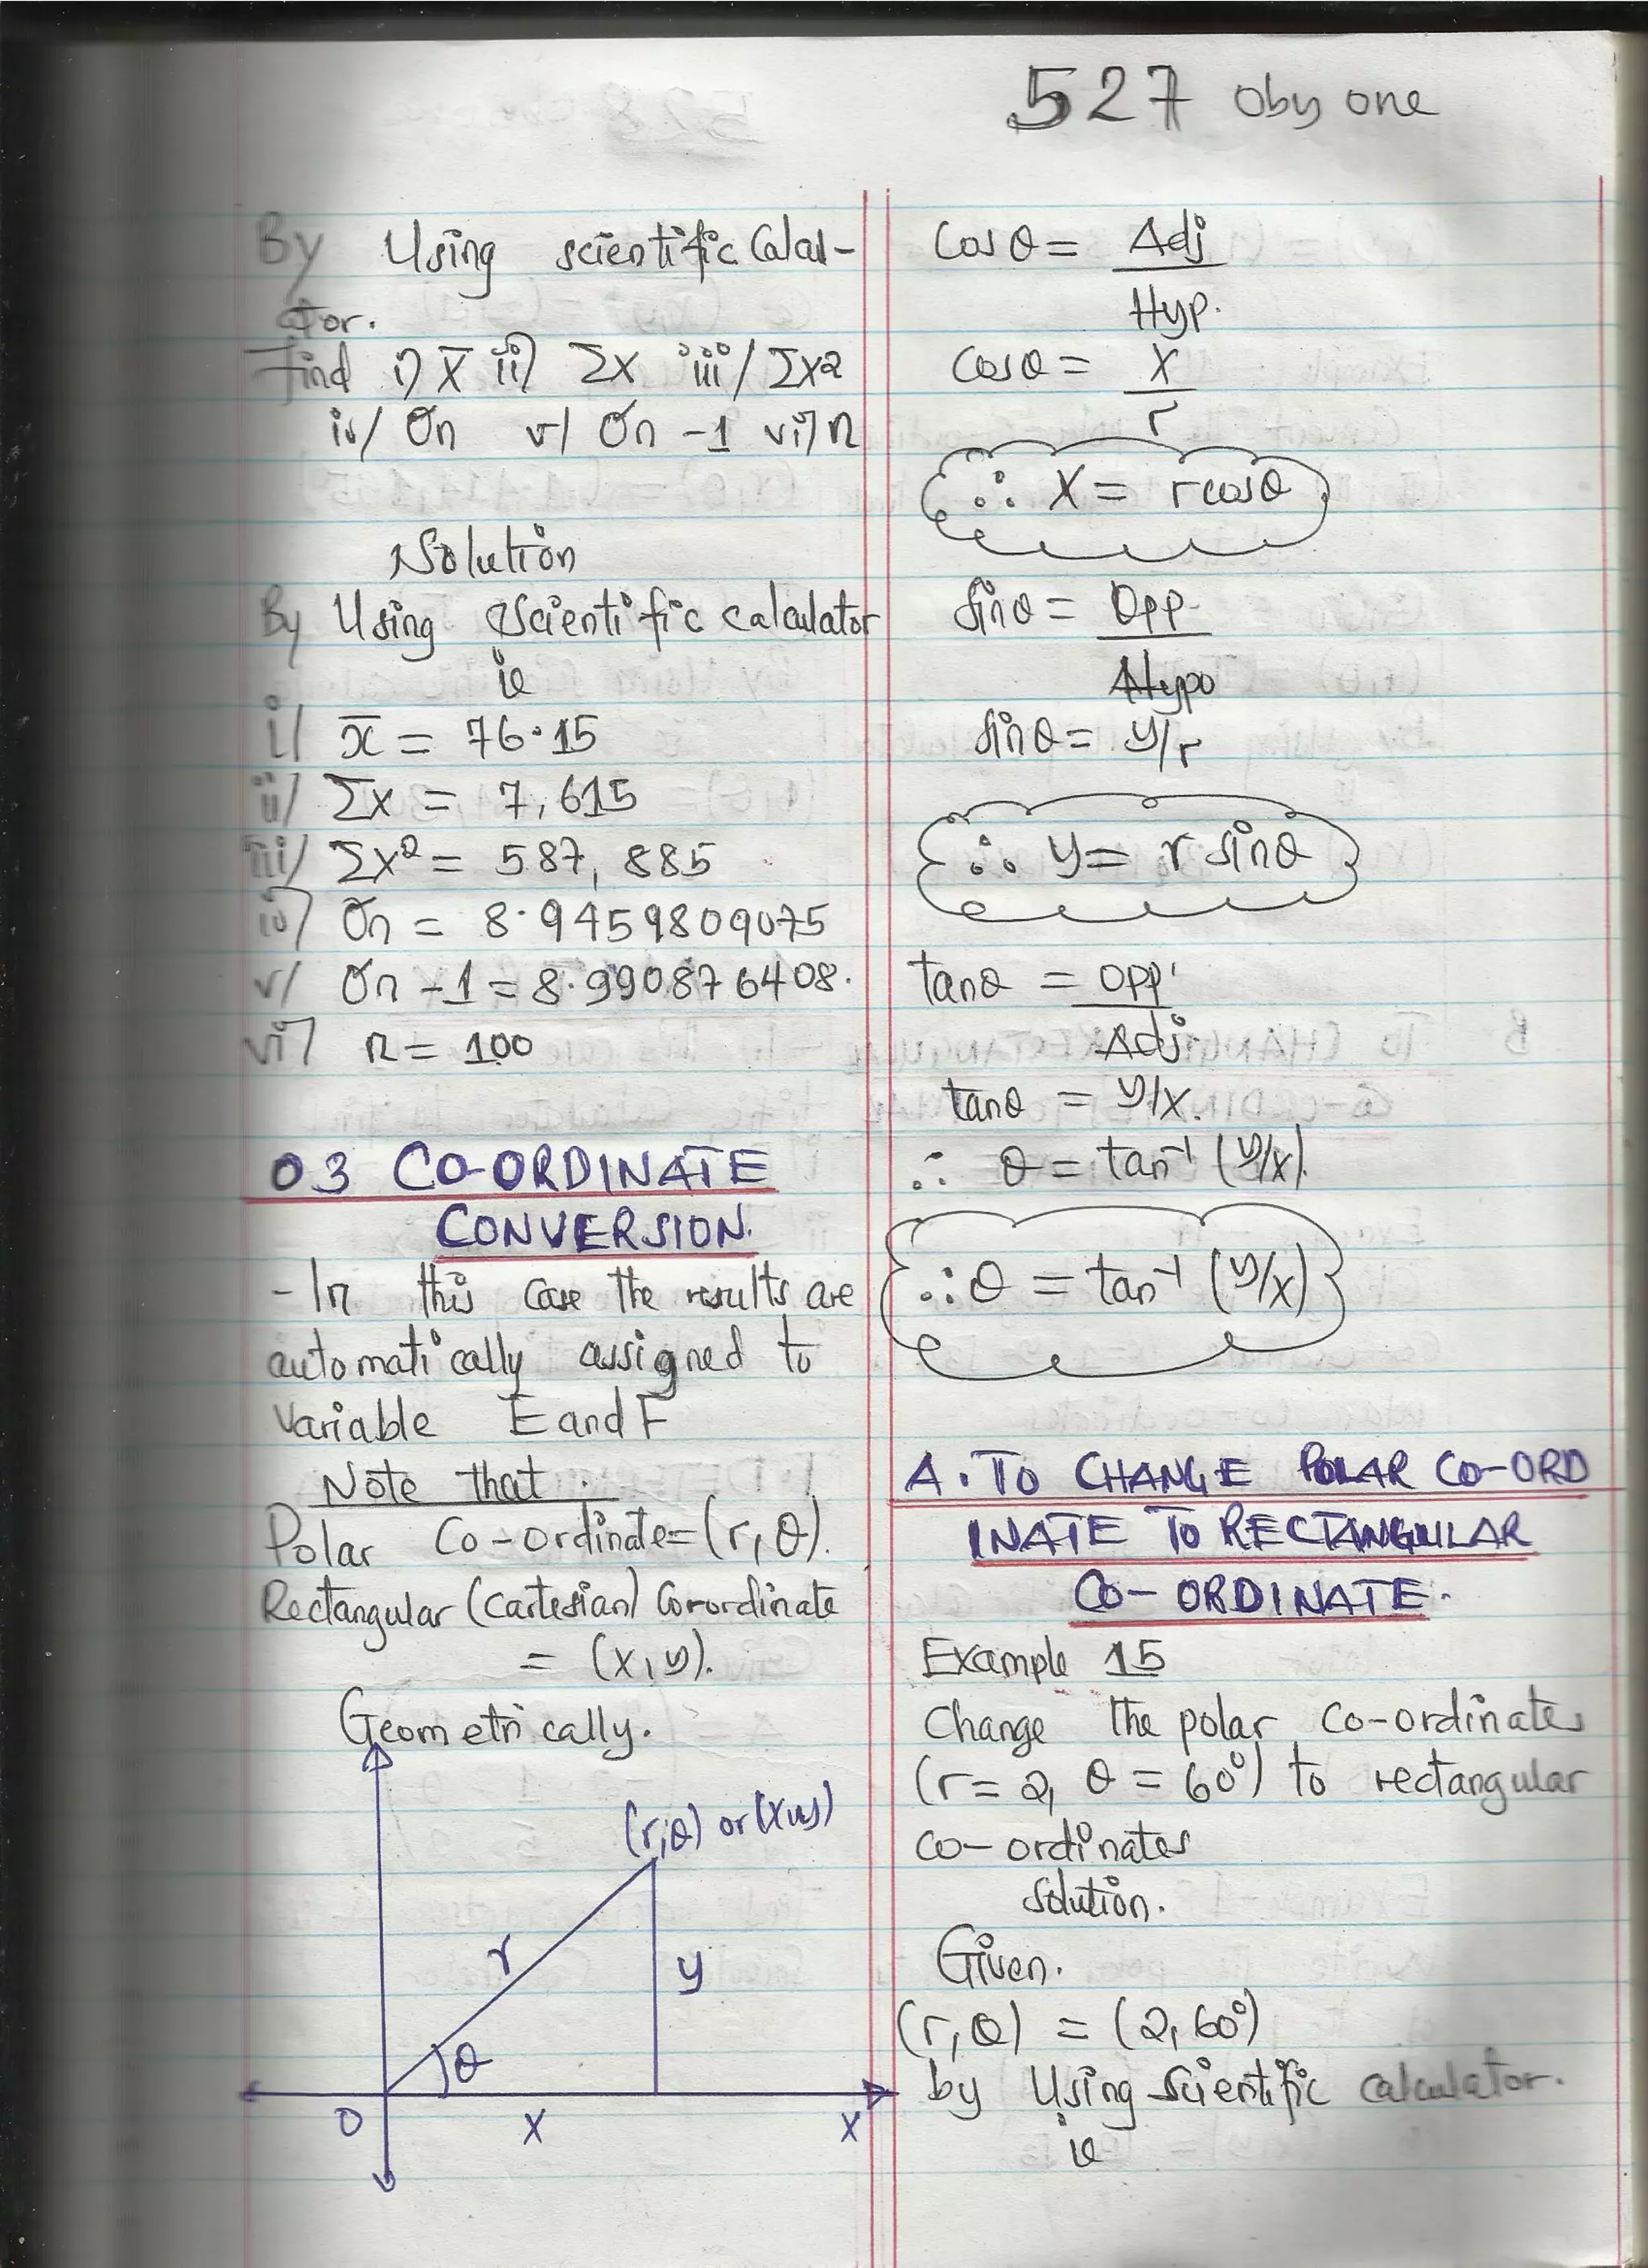 527 Oby one
By Using scientific Calcul-
ator.
Find i) X̄ ii) ΣX iii/ ΣX2
iv/ σn v/ σn -1 vi) n
Solution
By Using Scientific calculator
ie
i/ x̄ = 76.15
ii/ Σx = 7,615
iii/ Σx² = 587,885
iv) σn = 8.9459809075
v/ σn -1 = 8.990876408.
vi) n = 100
03 CO-ORDINATE
CONVERSION.
- In this case the results are
automatically assigned to
variable E and F
Note that.
Polar Co-ordinate = (r, θ).
Rectangular (Cartesian) Coordinate
= (x, y).
Geometrically.
(r, θ) or (x, y)
r
y
θ
0
X
X
Cos θ = Adj
Hyp.
Cos θ = X
r
∴ X = r cos θ
Sin θ = Opp.
Hypo
Sin θ = y/r
∴ y = r sin θ
tan θ = opp
Adj.
tan θ = y/x.
∴ θ = tan⁻¹ (y/x).
∴ θ = tan⁻¹ (y/x)
A. TO CHANGE POLAR CO-ORD
INATE TO RECTANGULAR
CO-ORDINATE.
Example 15
Change the polar co-ordinates
(r = 2, θ = 60°) to rectangular
co-ordinates
Solution.
Given.
(r, θ) = (2, 60°)
by Using Scientific calculator.
ie